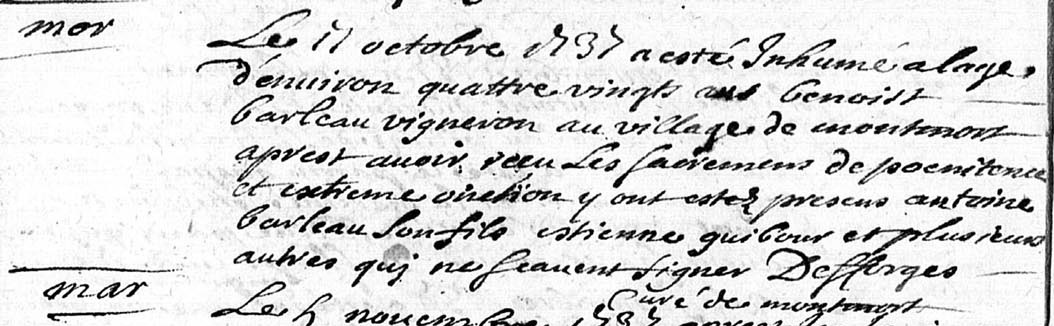 mor
Le 11 octobre 1737 a esté Inhumé a lage
d'enuiron quattre vingts ans benoist
barleau vigneron au village de montmort
aprest auoir receu Les sacremens de poenitence
et extreme onction y ont estez presens antoine
barleau son fils estienne guibour et plusieurs
autres quj ne sçauent signer Defforges
curé de montmort
mar
Le 5 nouembre 1737 apres